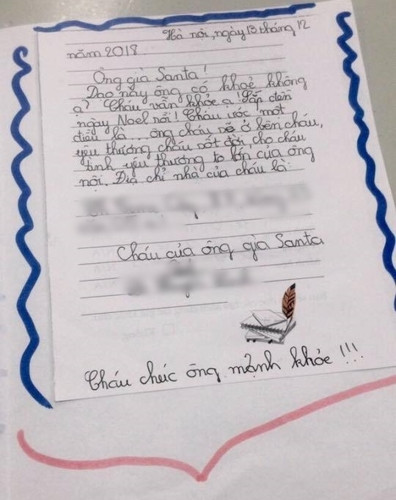 Hà nội, ngày 13 tháng 12
năm 2018
Ông già Santa!
Dạo này ông có khoẻ không
ạ? Cháu vẫn khỏe ạ. Sắp đến
ngày Noel rồi! Cháu ước một
điều là... ông cháu về ở bên cháu,
yêu thương cháu suốt đời, cho cháu
tình yêu thương to lớn của ông
nội. Địa chỉ nhà của cháu là:
Cháu của ông già Santa
Cháu chúc ông mạnh khỏe!!!